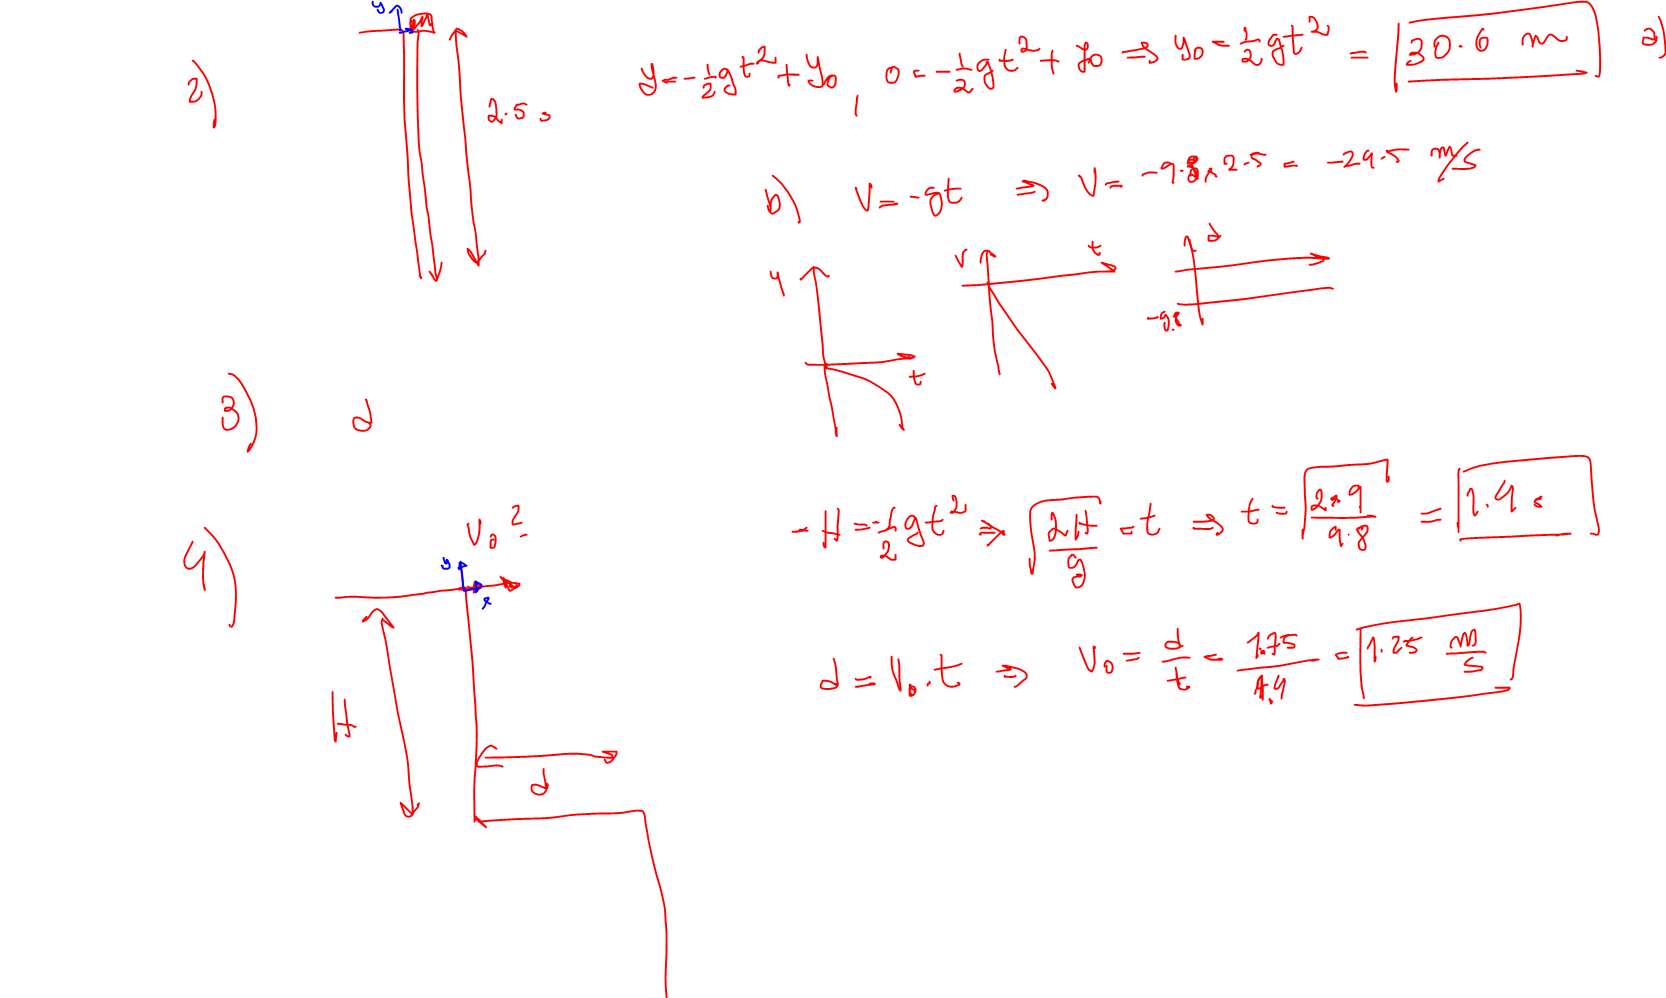 2)
y
m
2.5 s
y = -1/2 gt² + y₀ , 0 = -1/2 gt² + y₀ ⇒ y₀ = 1/2 gt² = 30.6 m a)
b) V = -gt ⇒ V = -9.8 × 2.5 = -24.5 m/s
y
t
V
t
-9.8
3) d
4)
V₀ ?
y
x
H
d
-H = -1/2 gt² ⇒ √(2H/g) = t ⇒ t = √(2×9/9.8) = 1.4 s
d = V₀ . t ⇒ V₀ = d/t = 1.75/1.4 = 1.25 m/s